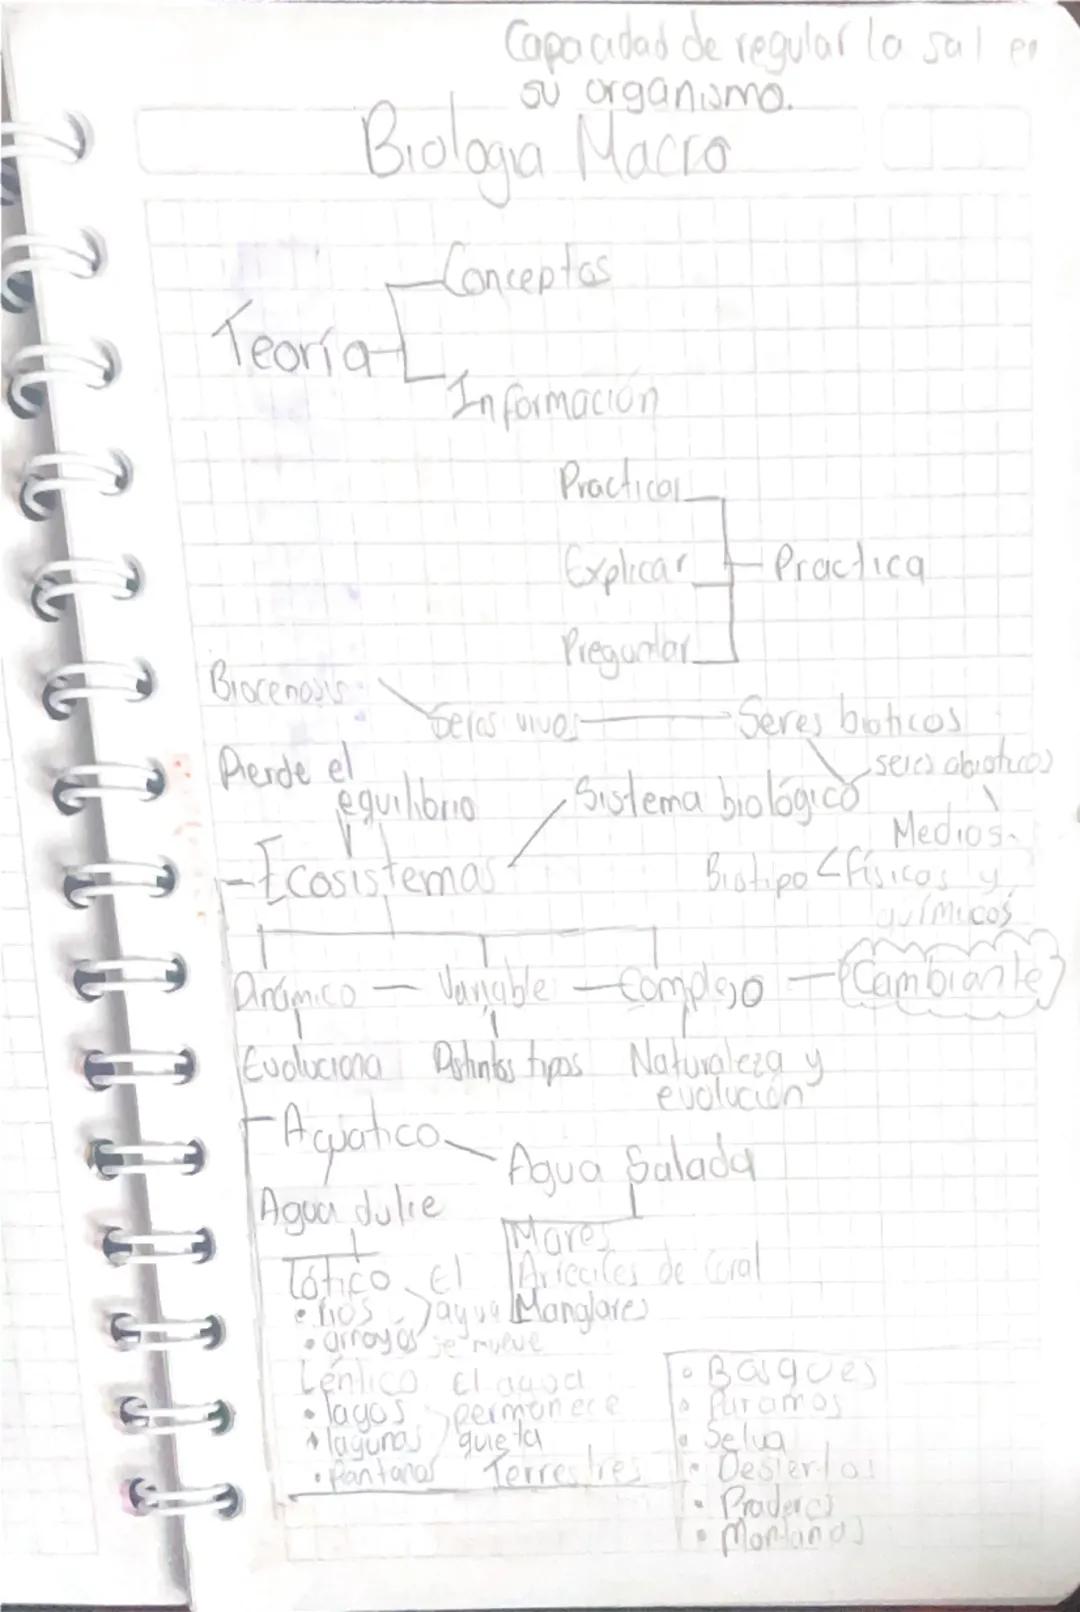 Capacidad de regular la sal en
su organismo.
Biologia Macro
Conceptos
Teoría
Información
Practicar
Explicar
Practica
Preguntar
Biocenosis
Seres vivos
Seres bioticos
Pierde el
equilibrio
Sistema biológico
seres abioticos
Medios
Ecosistemas
Biotipo físicos y
químicos
Dinámico — Variable — Complejo — Cambiante
Evoluciona
Distintos tipos
Naturaleza y
evolución
Aquatico
Agua Salada
Agua dulce
Mares
Lótico El
Arrecifes de coral
• Rios agua
Manglares
• arroyos se mueve
Léntico El agua
• lagos permanece
• lagunas quieta
• Pantanos
Terrestres
• Bosques
• Paramos
• Selva
• Desiertos
• Praderas
• Montañas